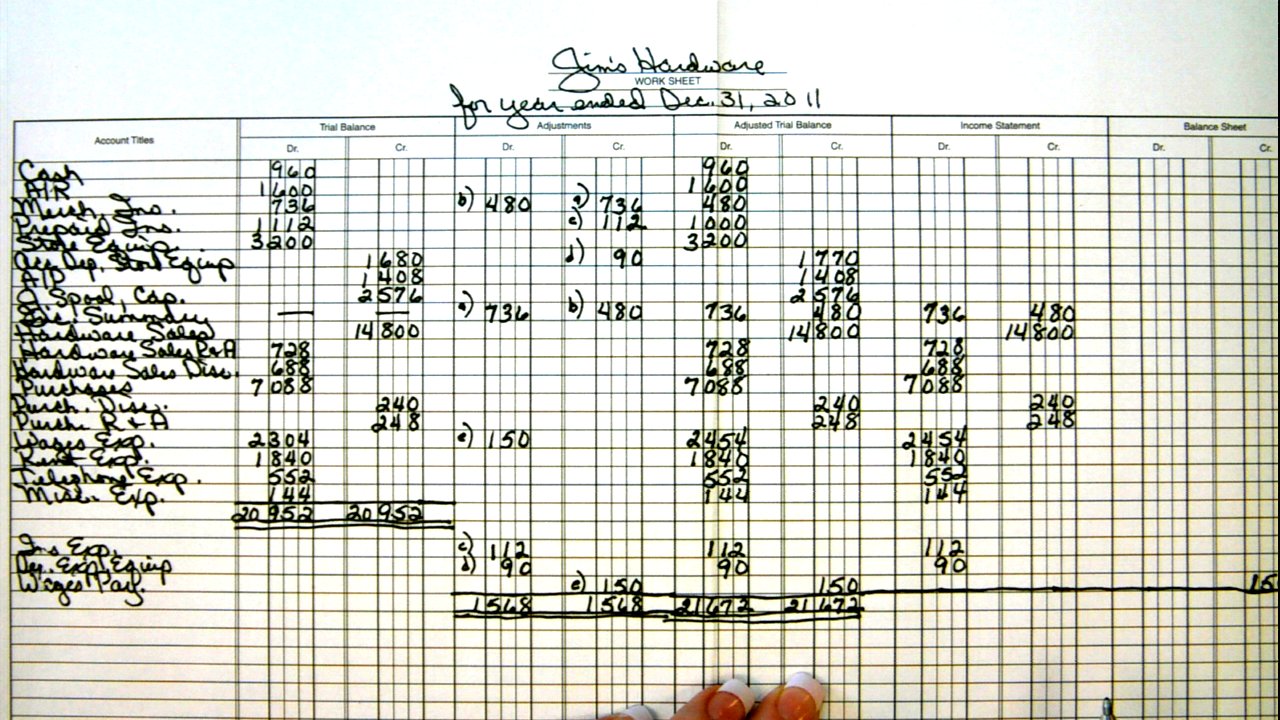 Jim's Hardware
WORK SHEET
for year ended Dec. 31, 2011
Trial Balance Adjustments Adjusted Trial Balance Income Statement Balance Sheet
Account Titles
Dr. Cr. Dr. Cr. Dr. Cr. Dr. Cr. Dr. Cr.
Cash 960 960
A/R 1600 1600
Merch. Ins. 736 b) 480 a) 736 480
Prepaid Ins. 1112 c) 112 1000
Store Equip. 3200 3200
Acc. Dep. Store Equip 1680 d) 90 1770
A/P 1408 1408
J. Spool, Cap. 2576 2576
Inc. Summary — — a) 736 b) 480 736 480 736 480
Hardware Sales 14800 14800 14800
Hardware Sales R+A 728 728 728
Hardware Sales Disc. 688 688 688
Purchases 7088 7088 7088
Purch. Disc. 240 240 240
Purch. R+A 248 248 248
Wages Exp. 2304 e) 150 2454 2454
Rent Exp. 1840 1840 1840
Telephone Exp. 552 552 552
Misc. Exp. 144 144 144
20952 20952
Ins Exp. c) 112 112 112
Dep. Exp. Equip d) 90 90 90
Wages Pay. e) 150 150 15
1568 1568 21672 21672